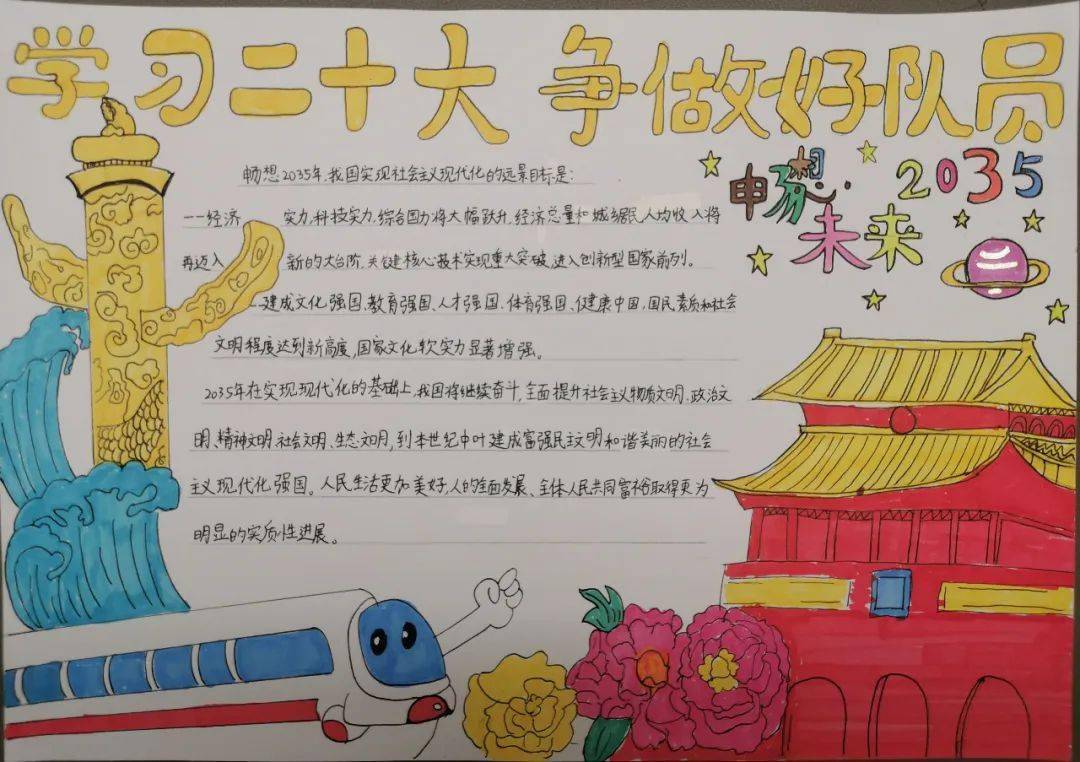 学习二十大 争做好队员
畅想
2035
未来
畅想2035年,我国实现社会主义现代化的远景目标是:
--经济 实力,科技实力,综合国力将大幅跃升,经济总量和城乡居民人均收入将
再迈入 新的大台阶,关键核心技术实现重大突破,进入创新型国家前列。
--建成文化强国、教育强国、人才强国、体育强国、健康中国,国民素质和社会
文明程度达到新高度,国家文化软实力显著增强。
2035年在实现现代化的基础上,我国将继续奋斗,全面提升社会主义物质文明、政治文
明、精神文明、社会文明、生态文明,到本世纪中叶建成富强民主文明和谐美丽的社会
主义现代化强国。人民生活更加美好,人的全面发展、全体人民共同富裕取得更为
明显的实质性进展。